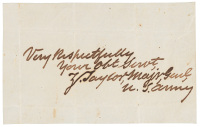 Very Respectfully
Your Obt Servt
Z. Taylor Majr. Genl
U. S. Army